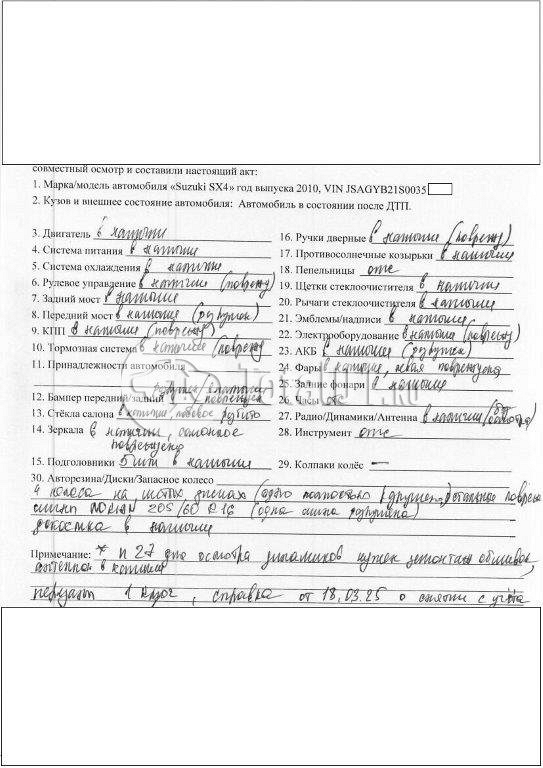 совместный осмотр и составили настоящий акт:
1. Марка/модель автомобиля «Suzuki SX4» год выпуска 2010, VIN JSAGYB21S0035
2. Кузов и внешнее состояние автомобиля: Автомобиль в состоянии после ДТП.
3. Двигатель в наличии
4. Система питания в наличии
5. Система охлаждения в наличии
6. Рулевое управление в наличии (поврежд)
7. Задний мост в наличии
8. Передний мост в наличии (разрушен)
9. КПП в наличии (поврежд)
10. Тормозная система в наличии (поврежд)
11. Принадлежности автомобиля
12. Бампер передний/задний
13. Стёкла салона в наличии, лобовое разбито
14. Зеркала в наличии, салонное
повреждено
15. Подголовники 5 шт в наличии
16. Ручки дверные в наличии (поврежд)
17. Противосолнечные козырьки в наличии
18. Пепельницы отс
19. Щетки стеклоочистителя в наличии
20. Рычаги стеклоочистителя в наличии
21. Эмблемы/надписи в наличии
22. Электрооборудование в наличии (поврежд)
23. АКБ в наличии (разрушен)
24. Фары в наличии, левая повреждена
25. Задние фонари в наличии
26. Часы отс
27. Радио/Динамики/Антенна в наличии (без осмотра)
28. Инструмент отс
29. Колпаки колёс —
30. Авторезина/Диски/Запасное колесо
4 колеса на литых дисках (одно полностью разрушен, остальное поврежд
шины NOKIAN 205/60 R16 (одна шина разрушена)
докатка в наличии
Примечание: * п 27 для осмотра динамиков нужен демонтаж обшивок,
антенна в наличии
передан 1 ключ, справка от 18.03.25 о снятии с учёта